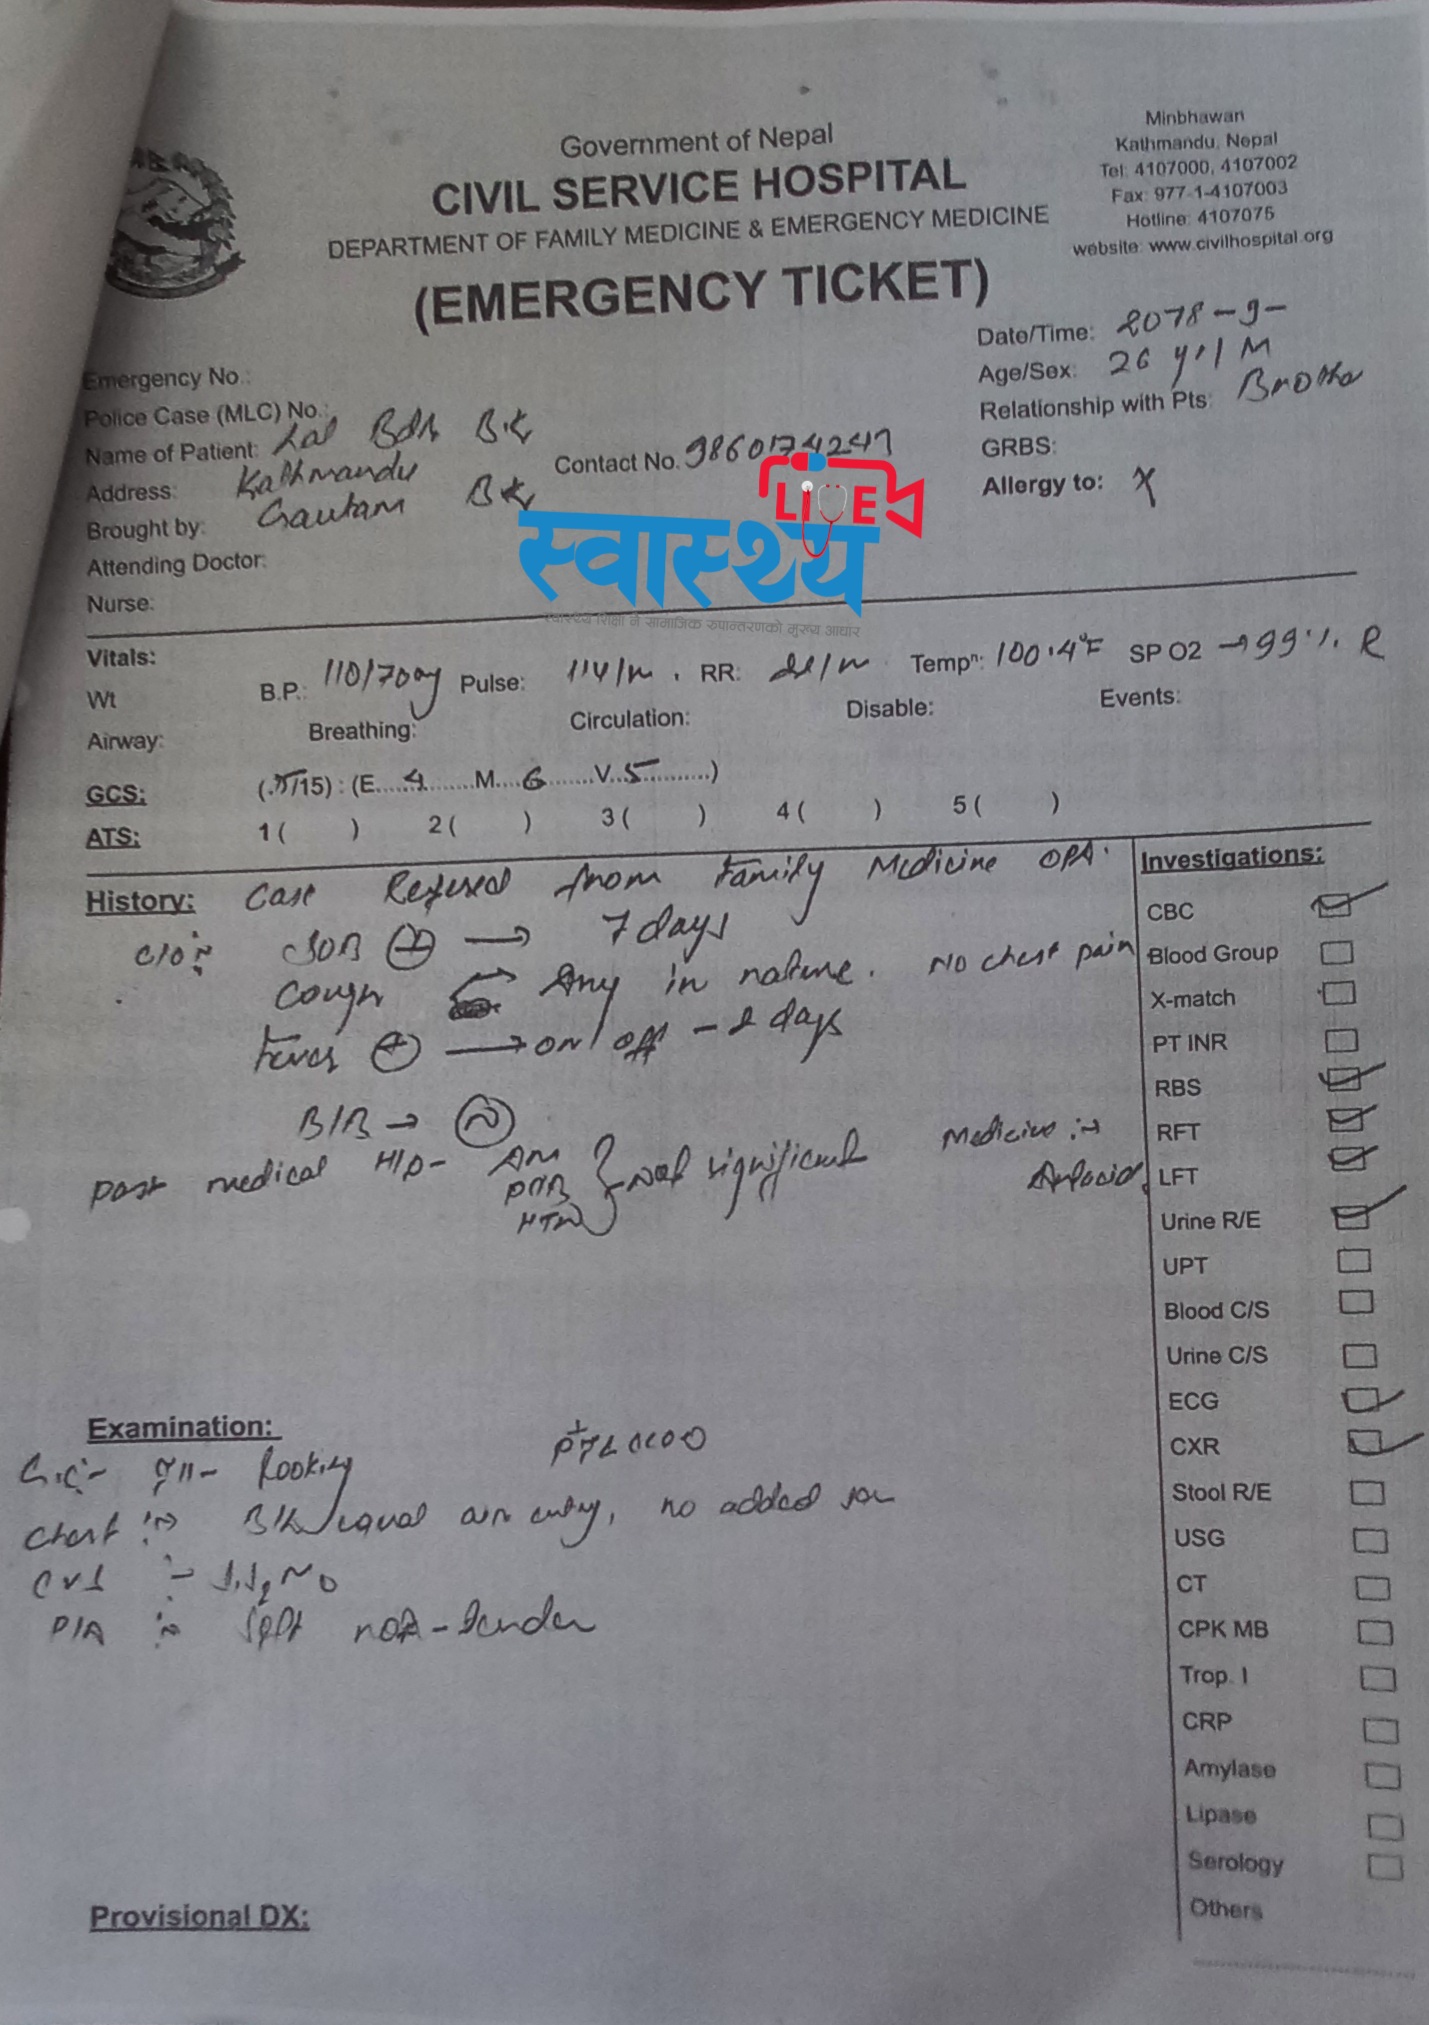 Government of Nepal
CIVIL SERVICE HOSPITAL
DEPARTMENT OF FAMILY MEDICINE & EMERGENCY MEDICINE
(EMERGENCY TICKET)
Minbhawan
Kathmandu, Nepal
Tel: 4107000, 4107002
Fax: 977-1-4107003
Hotline: 4107075
website: www.civilhospital.org
Date/Time: 2078-9-
Age/Sex: 26 yr/M
Relationship with Pts: Brother
GRBS:
Allergy to: X
Emergency No.:
Police Case (MLC) No.:
Name of Patient: Lal Bdr B.K
Contact No. 9860174247
Address: Kathmandu
Brought by: Gautam BK
Attending Doctor:
Nurse:
LIVE
स्वास्थ्य
स्वास्थ्य शिक्षा नै सामाजिक रुपान्तरणको मुख्य आधार
Vitals:
Wt B.P.: 110/70 Pulse: 114/m. RR: /m Tempⁿ: 100.4°F SP O2 → 99% R
Airway: Breathing: Circulation: Disable: Events:
GCS: ( /15) : (E.....4........M....6........V..5...........)
ATS: 1 ( ) 2 ( ) 3 ( ) 4 ( ) 5 ( )
History: Case Refered from Family Medicine OPD.
C/O:- SOB + → 7 days
Cough in nature. No chest pain
Fever + → on/off - 2 days
B/B → N
past medical H/O - not significant Medicine :-
HTN
Examination:
G.C:- ill-looking
Chest :- B/L equal air entry, no added
CVS :- S1S2 M0
P/A :- soft non-tender
Provisional DX:
Investigations:
CBC
Blood Group
X-match
PT INR
RBS
RFT
LFT
Urine R/E
UPT
Blood C/S
Urine C/S
ECG
CXR
Stool R/E
USG
CT
CPK MB
Trop. I
CRP
Amylase
Lipase
Serology
Others